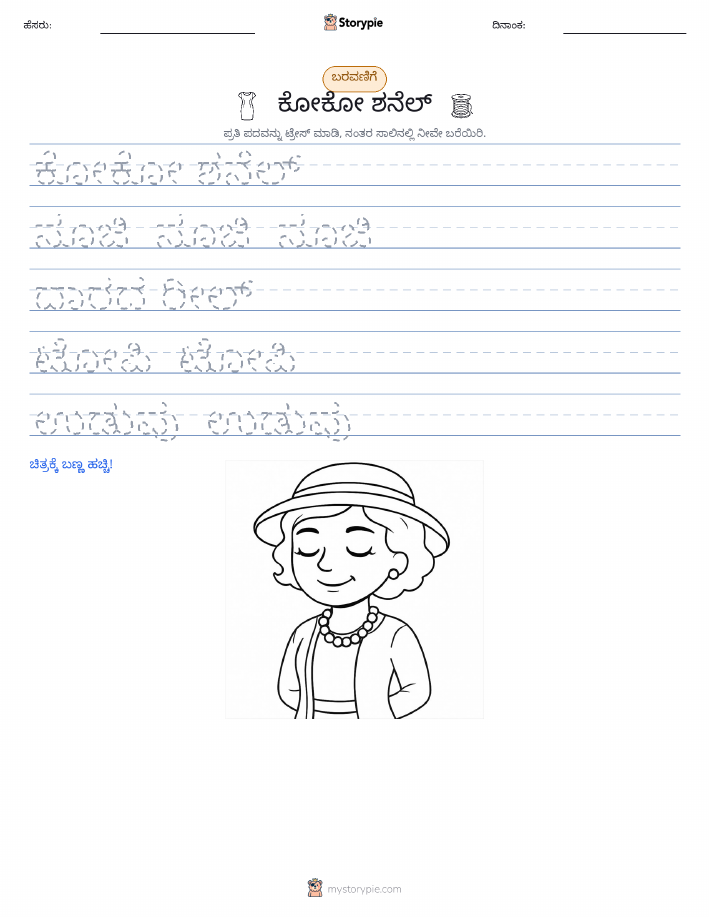 ಹೆಸರು:
Storypie
ದಿನಾಂಕ:
ಬರವಣಿಗೆ
ಕೋಕೋ ಶನೆಲ್
ಪ್ರತಿ ಪದವನ್ನು ಟ್ರೇಸ್ ಮಾಡಿ, ನಂತರ ಸಾಲಿನಲ್ಲಿ ನೀವೇ ಬರೆಯಿರಿ.
ಕೋಕೋ ಶನೆಲ್
ಸೂಜಿ ಸೂಜಿ ಸೂಜಿ
ದಾರದ ರೀಲ್
ಟೋಪಿ ಟೋಪಿ
ಉಡುಪು ಉಡುಪು
ಚಿತ್ರಕ್ಕೆ ಬಣ್ಣ ಹಚ್ಚಿ!
mystorypie.com